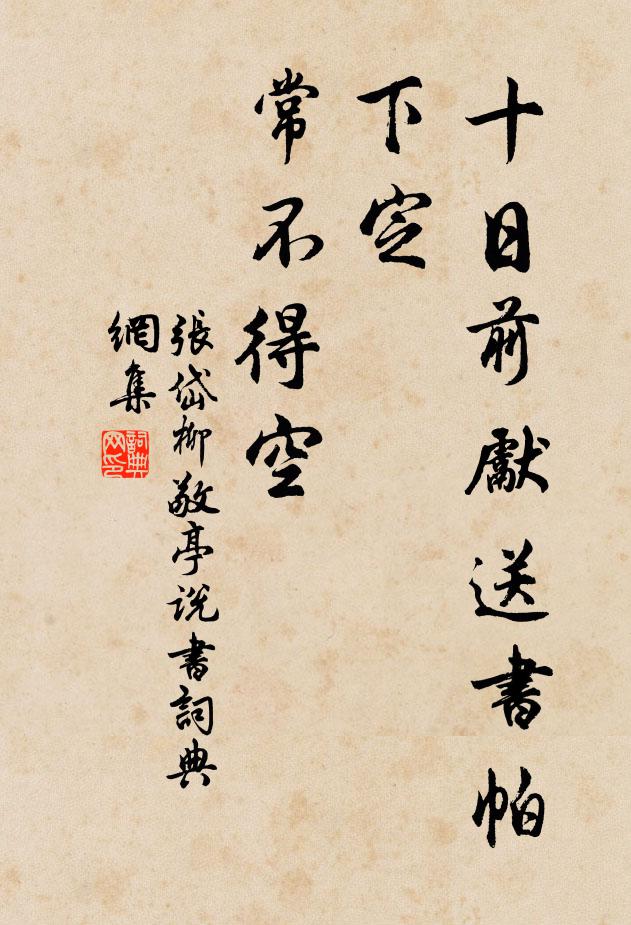 十日前獻送書帕
下定
常不得空
張岱柳敬亭說書詞典
網集
詞典
网印